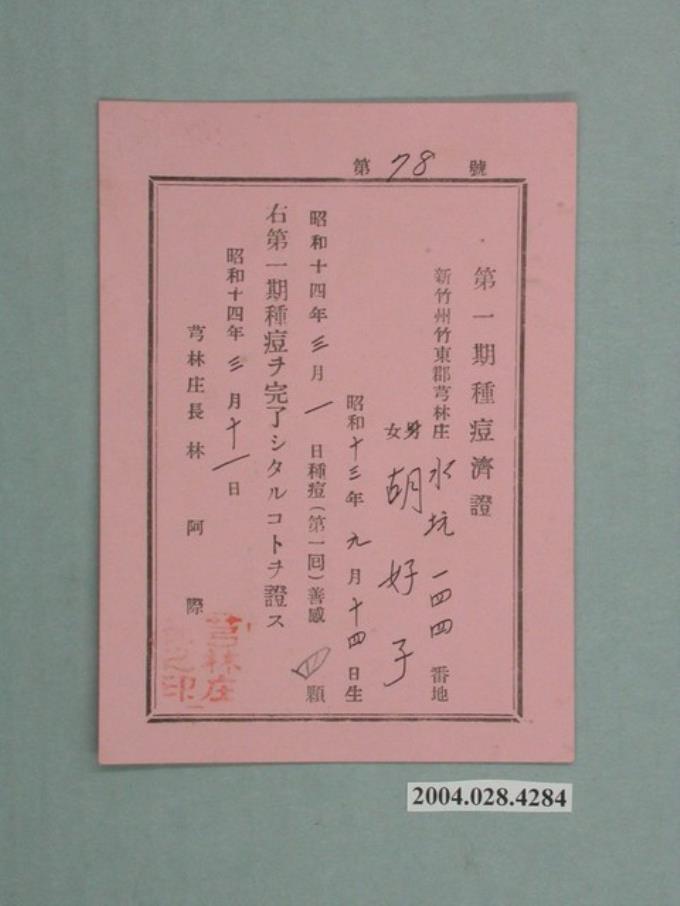 第78號
第一期種痘濟證
新竹州竹東郡芎林庄水坑一四四番地
男女 胡好子
昭和十三年九月十四日生
昭和十四年三月一日種痘(第一回)善感四顆
右第一期種痘ヲ完了シタルコトヲ證ス
昭和十四年三月十一日
芎林庄長林阿際
芎林庄
之印
2004.028.4284